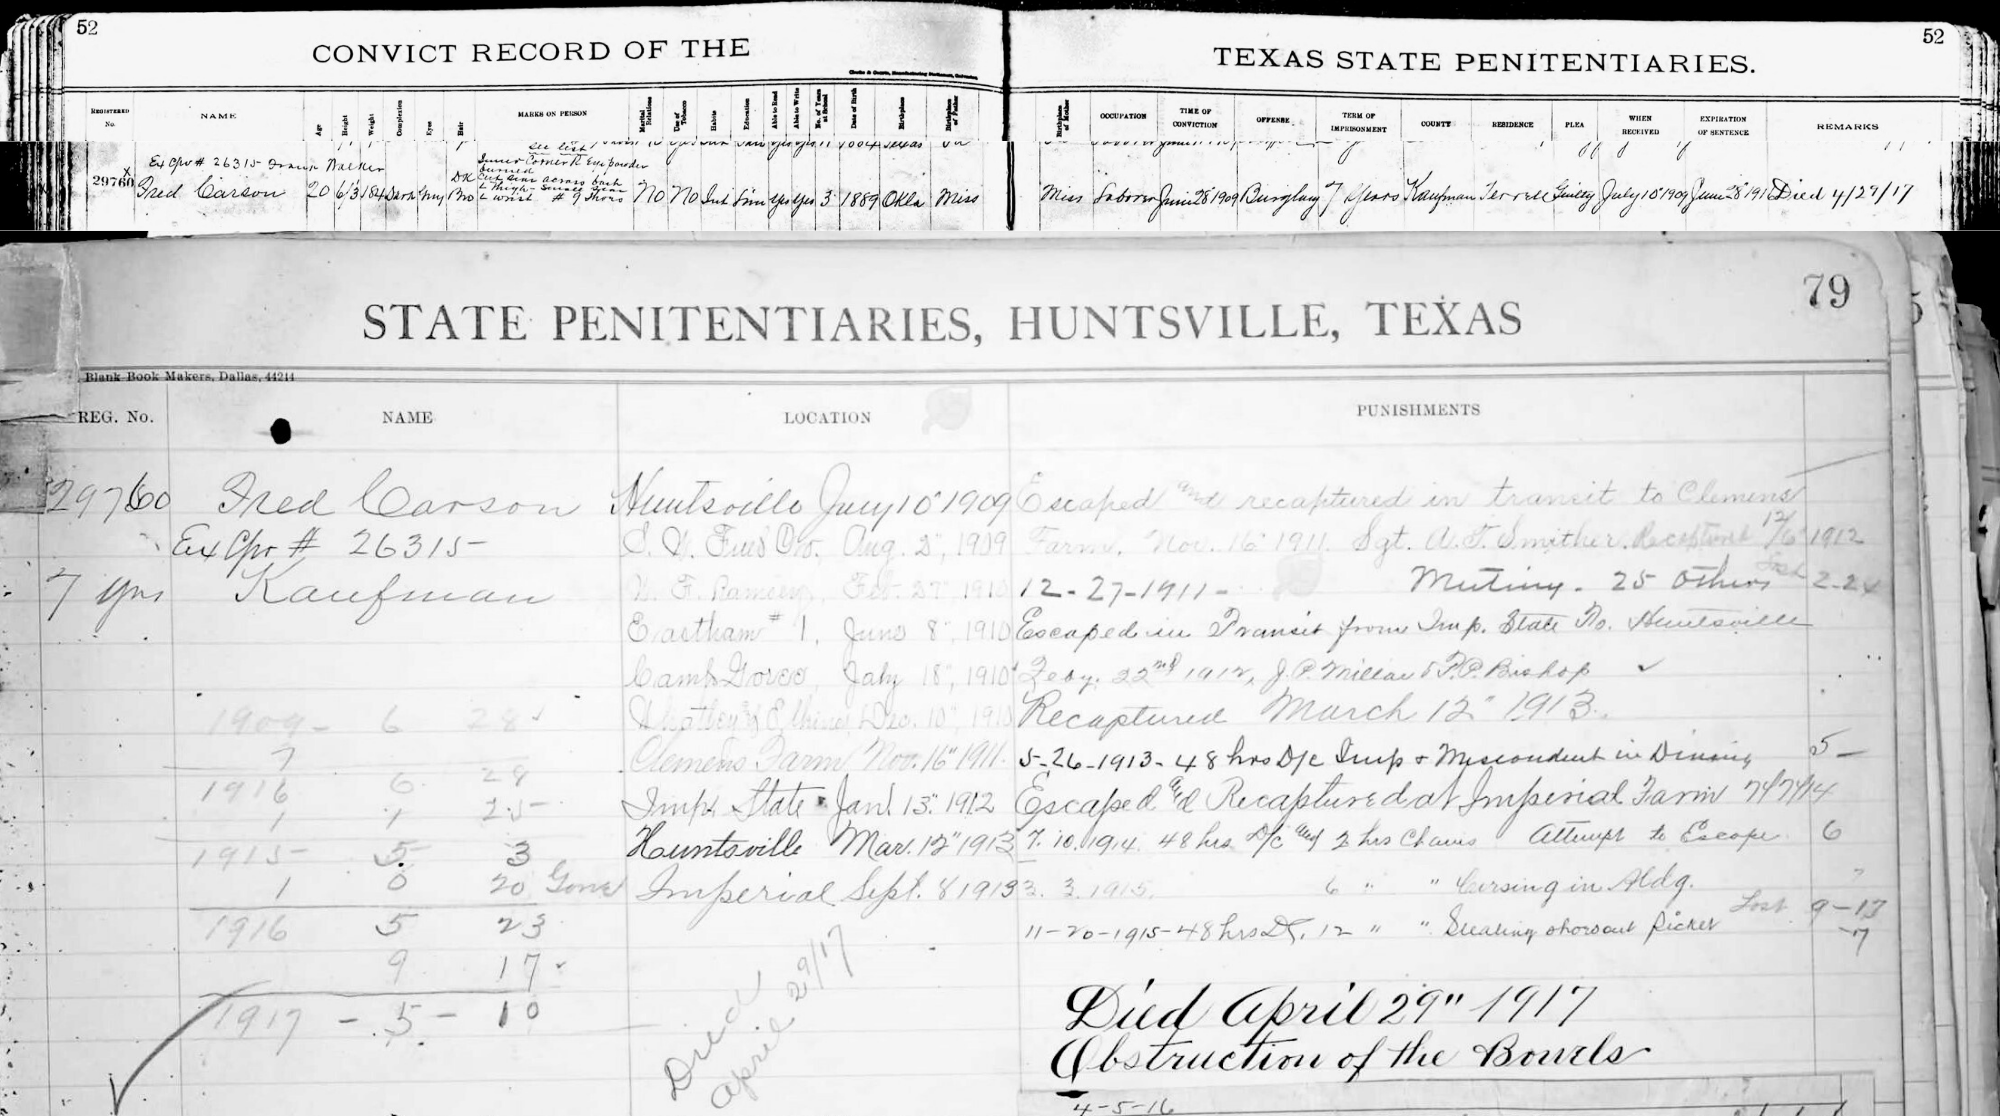 52
52
CONVICT RECORD OF THE
TEXAS STATE PENITENTIARIES.
REGISTERED No. NAME Age Height Weight Complexion Eyes Hair MARKS ON PERSON Marital Relations Use of Tobacco Habits Education Able to Read Able to Write No. of Years at School Date of Birth Birthplace Birthplace of Father Birthplace of Mother OCCUPATION TIME OF CONVICTION OFFENSE TERM OF IMPRISONMENT COUNTY RESIDENCE PLEA WHEN RECEIVED EXPIRATION OF SENTENCE REMARKS
Ex Cpv # 26315 Frank Walker
Inner Corner R Eye powder
burned
Cut scar across back
L thigh - small scar
L wrist # 9 Shoes
29760 Fred Carson 20 6/3 184 Dark DK Bro No No Int yes yes 3 1889 Okla Miss Miss Laborer June 28 1909 Burglary 7 years Kaufman Terrell Guilty July 10" 1909 June 28 1916 Died 4/29/17
79
STATE PENITENTIARIES, HUNTSVILLE, TEXAS
Blank Book Makers, Dallas, 44214
REG. No. NAME LOCATION PUNISHMENTS
29760 Fred Carson Huntsville July 10" 1909 Escaped and recaptured in transit to Clemens
Ex Cpv # 26315 Aug. 2", 1909 Farm, Nov. 16" 1911. Sgt. A. T. Smither. Recaptured 12/6" 1912
7 yrs Kaufman Feb. 27" 1910 12-27-1911- Mutiny. 25 others Lost 2-24
Eastham # 1, June 8", 1910 Escaped in Transit from Imp. State To. Huntsville
Camp Goree, July 18", 1910 Feby. 22nd 1912, J. P. Millar & F. P. Bishop ✓
1909- 6 28 Whatley & Elkins, Dec. 10", 1910 Recaptured March 12" 1913.
7 Clemens Farm Nov. 16" 1911. 5-26-1913- 48 hrs D/c Imp & Misconduct in Dining 5-
1916 6 28 Imp. State Jan. 13" 1912 Escaped and Recaptured at Imperial Farm 7/7/14
1 1 25 Huntsville Mar. 12" 1913 7. 10. 1914. 48 hrs D/c and 2 hrs Chains Attempt to Escape 6
1915 5 3
1 0 20 Gone Imperial Sept. 8 1913 3. 3. 1915. 6 " " Cursing in Bldg.
1916 5 23 Lost 9-13
11-20-1915-48 hrs DC, 12 " " Stealing Picket -7
9 17
1917 - 5 - 10
Died
April 29/17
Died April 29" 1917
Obstruction of the Bowels
4-5-16